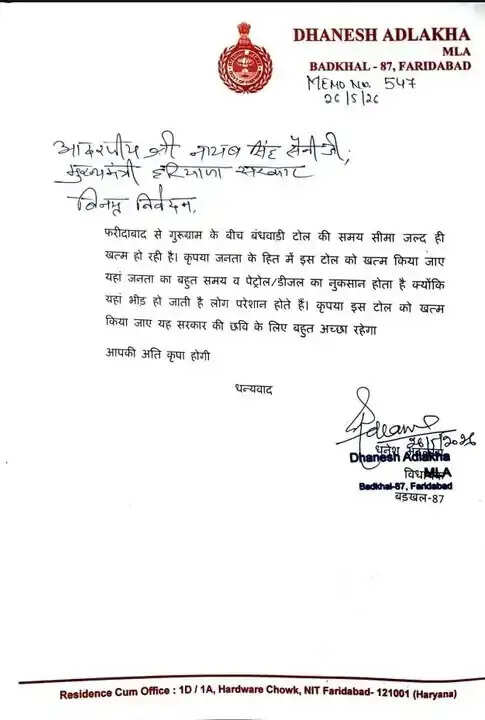 DHANESH ADLAKHA
MLA
BADKHAL - 87, FARIDABAD
MEMO No. 547
26/5/26
आदरणीय श्री नायब सिंह सैनी जी,
मुख्यमंत्री हरियाणा सरकार
विनम्र निवेदन,
फरीदाबाद से गुरुग्राम के बीच बंधवाडी टोल की समय सीमा जल्द ही
खत्म हो रही है। कृपया जनता के हित में इस टोल को खत्म किया जाए
यहां जनता का बहुत समय व पेट्रोल/डीजल का नुकसान होता है क्योंकि
यहां भीड़ हो जाती है लोग परेशान होते हैं। कृपया इस टोल को खत्म
किया जाए यह सरकार की छवि के लिए बहुत अच्छा रहेगा
आपकी अति कृपा होगी
धन्यवाद
26/5/2026
धनेश
Dhanesh Adlakha
MLA
Badkhal-87, Faridabad
बड़खल-87
Residence Cum Office : 1D / 1A, Hardware Chowk, NIT Faridabad- 121001 (Haryana)